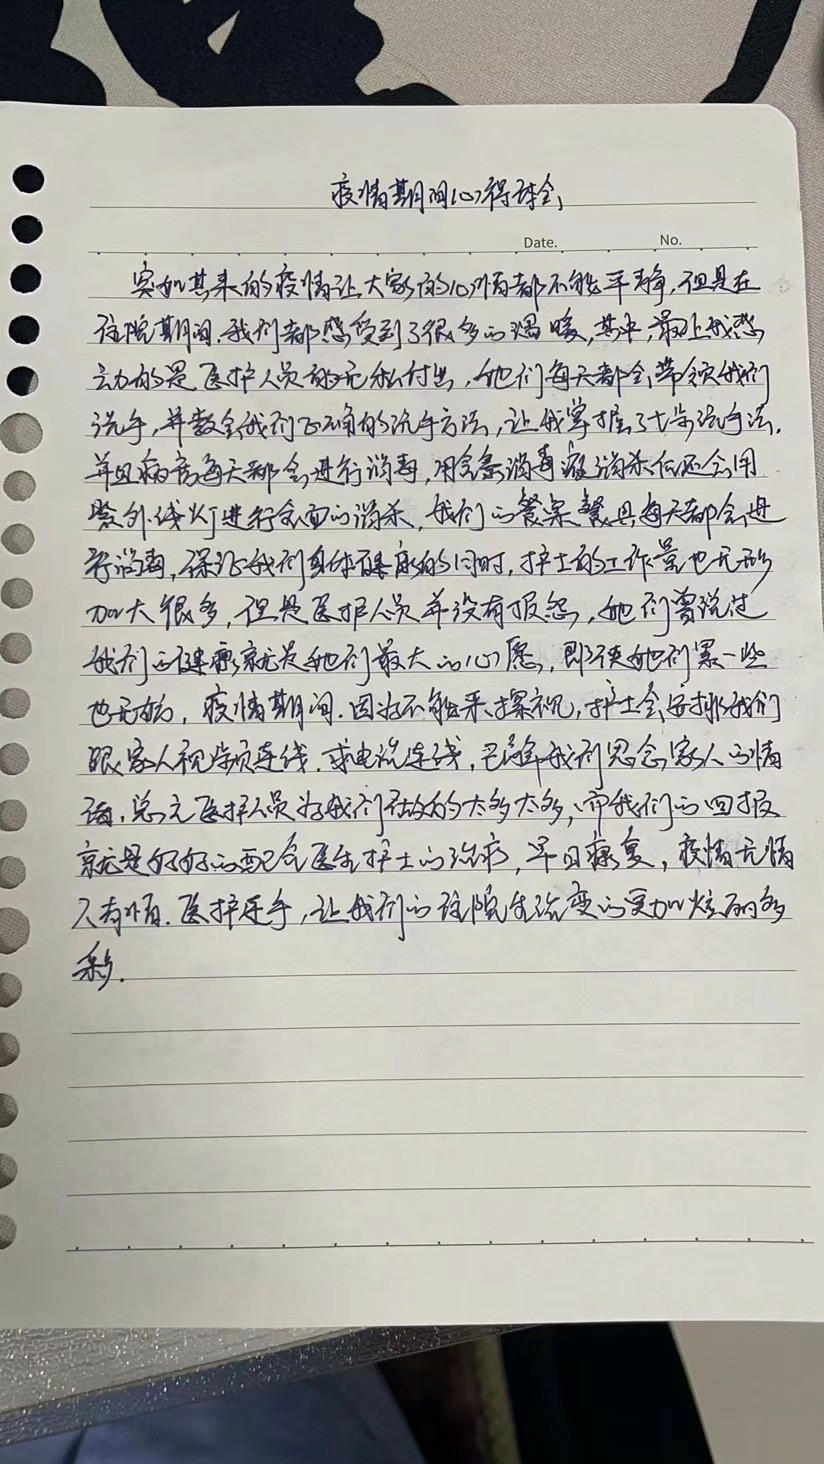 疫情期间心得体会
Date.
No.
突如其来的疫情让大家的心情都不能平静，但是在
住院期间，我们都感受到了很多的温暖，其中，最让我感
动的是医护人员的无私付出，她们每天都会带领我们
洗手，并教会我们正确的洗手方法，让我掌握了七步洗手法．
并且病房每天都会进行消毒，用含氯消毒液消杀后还会用
紫外线灯进行全面的消杀，我们的餐桌餐具每天都会进
行消毒，保证我们身体健康的同时，护士的工作量也无形
加大很多，但是医护人员并没有报怨，她们曾说过
我们的健康就是她们最大的心愿，即使她们累一些
也无妨，疫情期间．因为不能来探视，护士会安排我们
跟家人视频连线．或电话连线，已解我们思念家人的情
，总之医护人员为我们做的太多太多，而我们的回报
就是好好的配合医生护士的治疗，早日康复，疫情无情
人有情．医护连手，让我们的住院生活变的更加炫丽多
彩．